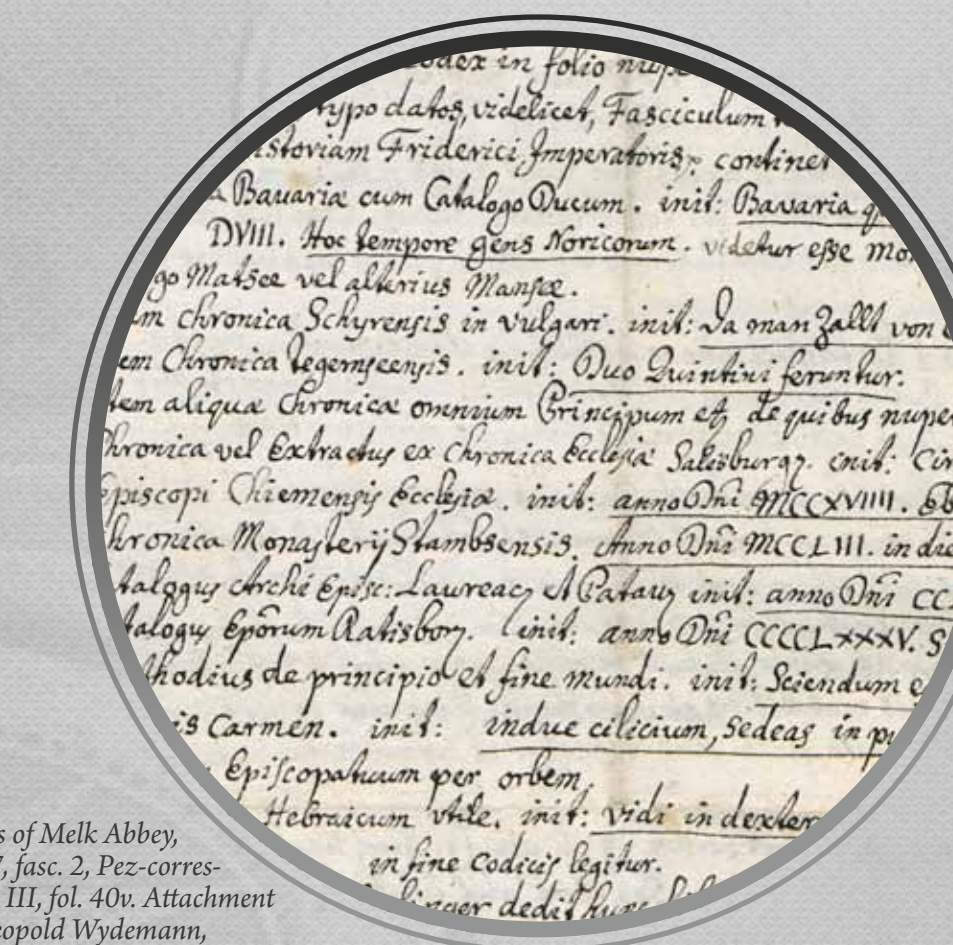 Codex in folio
typo datos, videlicet, Fasciculum
istoriam Friderici Imperatoris, continet
Bavariæ cum Catalogo Ducum. init: Bavaria
DVIII. Hoc tempore gens Noricorum. videtur esse
go Matsee vel alterius Mansee.
em Chronica Schyrensis in vulgari. init: Da man Zallt von
em Chronica tegernseensis. init: Duo Quintini feruntur.
tem aliquæ Chronicæ omnium Principum et de quibus nuper
Chronica vel Extractus ex Chronica Ecclesiæ Salisburg. init:
Episcopi Chiemensis Ecclesiæ. init: anno Dñi MCCXVIIII.
hronica Monasterij Stambsensis. Anno Dñi MCCLIII. in die
atalogus Archi Episc: Laureac, et Patauy init: anno Dñi CC
atalogus Epõrum Ratisbon. init: anno Dñi CCCCLXXXV. S
thodius de principio et fine mundi. init: Sciendum e
is Carmen. init: indue cilicium, sedeas in
Episcopatuum per orbem.
Hebraicum vtile. init: vidi in dexter
in fine codicis legitur.
dedit hunc
s of Melk Abbey,
7, fasc. 2, Pez-corres-
III, fol. 40v. Attachment
eopold Wydemann,